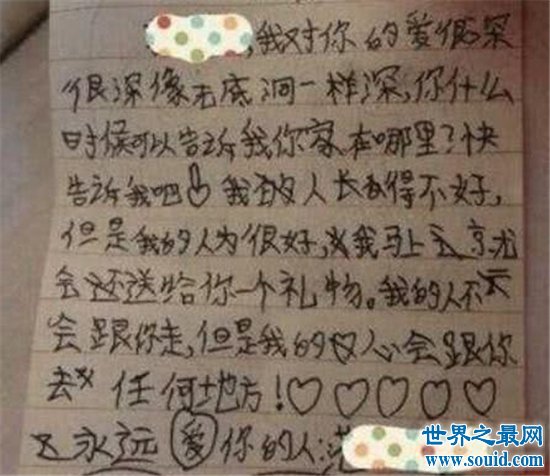 ,我对你的爱很深
很深像无底洞一样深,你什么
时候可以告诉我你家在哪里?快
告诉我吧 我的人长得不好,
但是我的人为很好,我马上
会还送给你一个礼物。我的人不
会跟你走,但是我的心会跟你
去任何地方!♡♡♡♡♡
永远爱你的人:
世界之最网
www.souid.com